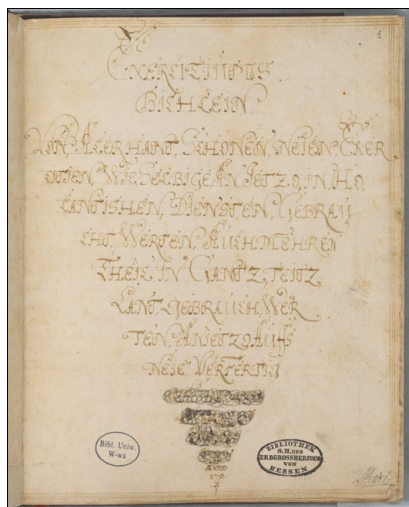 1
EXERSITIUMS
BIEHLEIN
VON, ALERHANT, SCHONEN, NEIEN, EXER
WIE, SELBIGE AN, IETZO, IN, HO
LANTISHEN, DIENSTEN, GEBRAU
EHT, WERTEN, AUEH MEHREN
THEIL, IN GANTZ, TEITZ
LANT, GEBRAUEH, WER
TEN, ANIETZO, AUFFS
NEIE, VERFERTIGT
Bibl. Uniw.
W-wa
BIBLIOTHEK
S. H. DES
ERBGROSSHERZOGS
VON
HESSEN